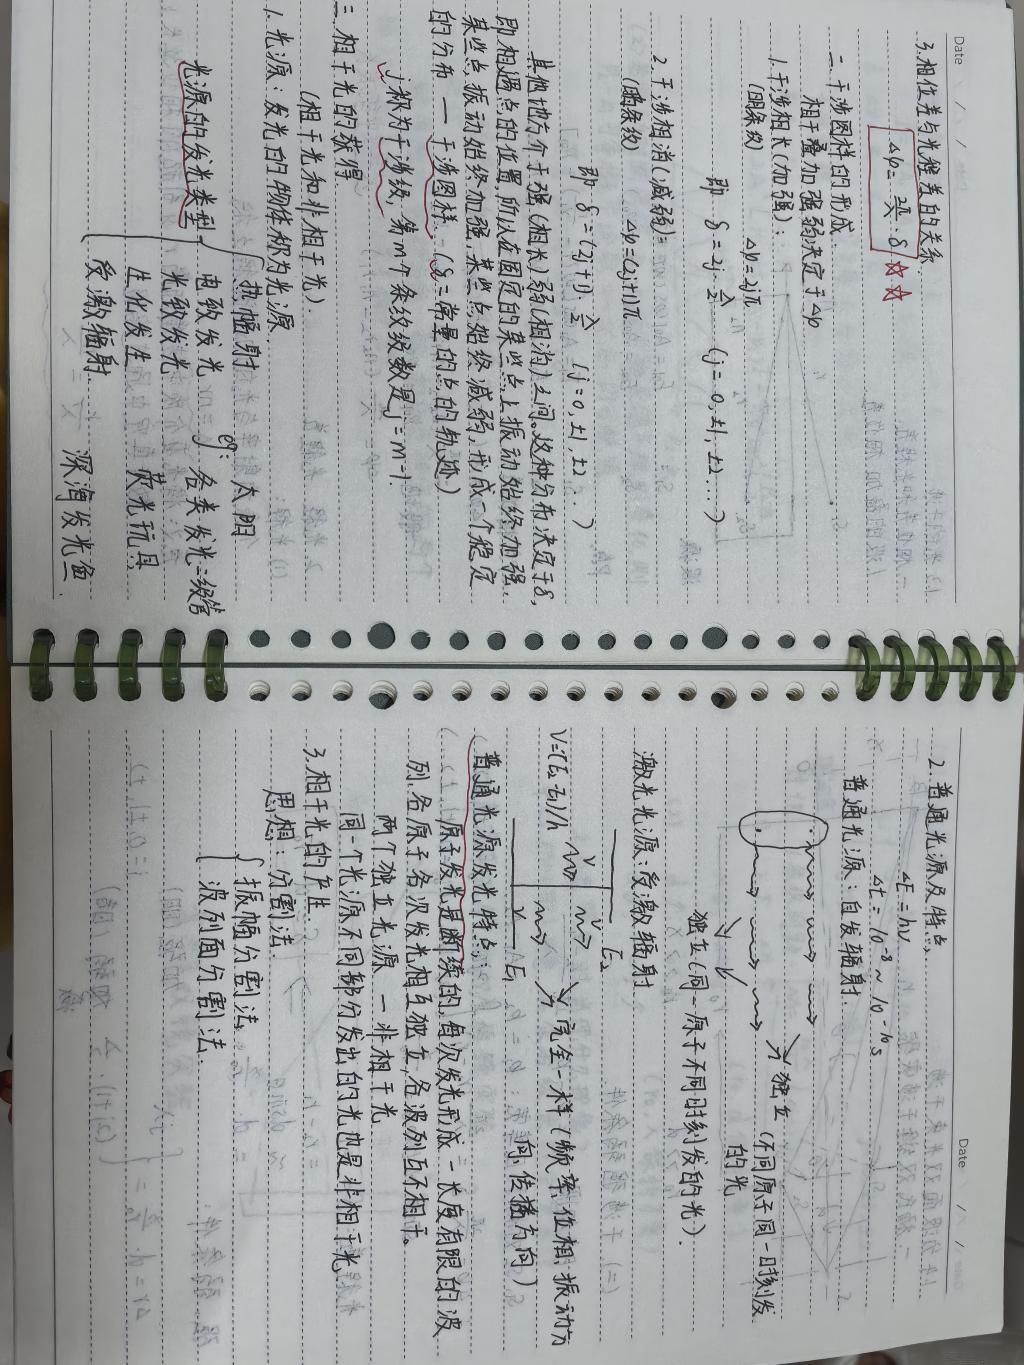 Date
3.相位差与光程差的关系
Δφ = 2π/λ · δ ☆☆
二.干涉图样的形成.
相干叠加强弱决定于Δφ
1.干涉相长(加强):
(明条纹) Δφ=2jπ
即 δ=2j·λ/2 (j=0,±1,±2...)
2.干涉相消(减弱):
(暗条纹) Δφ=(2j+1)π
即 δ=(2j+1)·λ/2 (j=0,±1,±2..)
其他地方介于强(相长)弱(相消)之间。这种分布决定于δ,
即相遇点的位置,所以在固定的某些点上振动始终加强.
某些点,振动始终加强,某些点始终减弱,形成一个稳定
的分布 —— 干涉图样. (δ=常量的点的轨迹)
j称为干涉级, 第m个条纹级数是j=m-1.
三.相干光的获得.
(相干光和非相干光).
1.光源:发光的物体称为光源.
光源的发光类型
热辐射 eg: 太阳
电致发光 各类发光二级管
光致发光 荧光玩具
生化发生 深海发光鱼.
受激辐射.
Date
2.普通光源及特点
ΔE=hν
Δt=10⁻⁸~10⁻¹⁰s
普通光源:自发辐射.
独立 (不同原子同一时刻发
的光
独立(同一原子不同时刻发的光).
激光光源:受激辐射
E₂
ν=(E₂-E₁)/h ν ν 完全一样(频率,位相,振动方
ν E₁ 向,传播方向)
普通光源发光特点:
原子发光是断续的,每次发光形成一长度有限的波
列.各原子各次发光相互独立,各波列互不相干。
两个独立光源 — 非相干光
同一个光源不同部分发出的光也是非相干光.
3.相干光的产生.
思想:分割法.
振幅分割法.
波列面分割法.